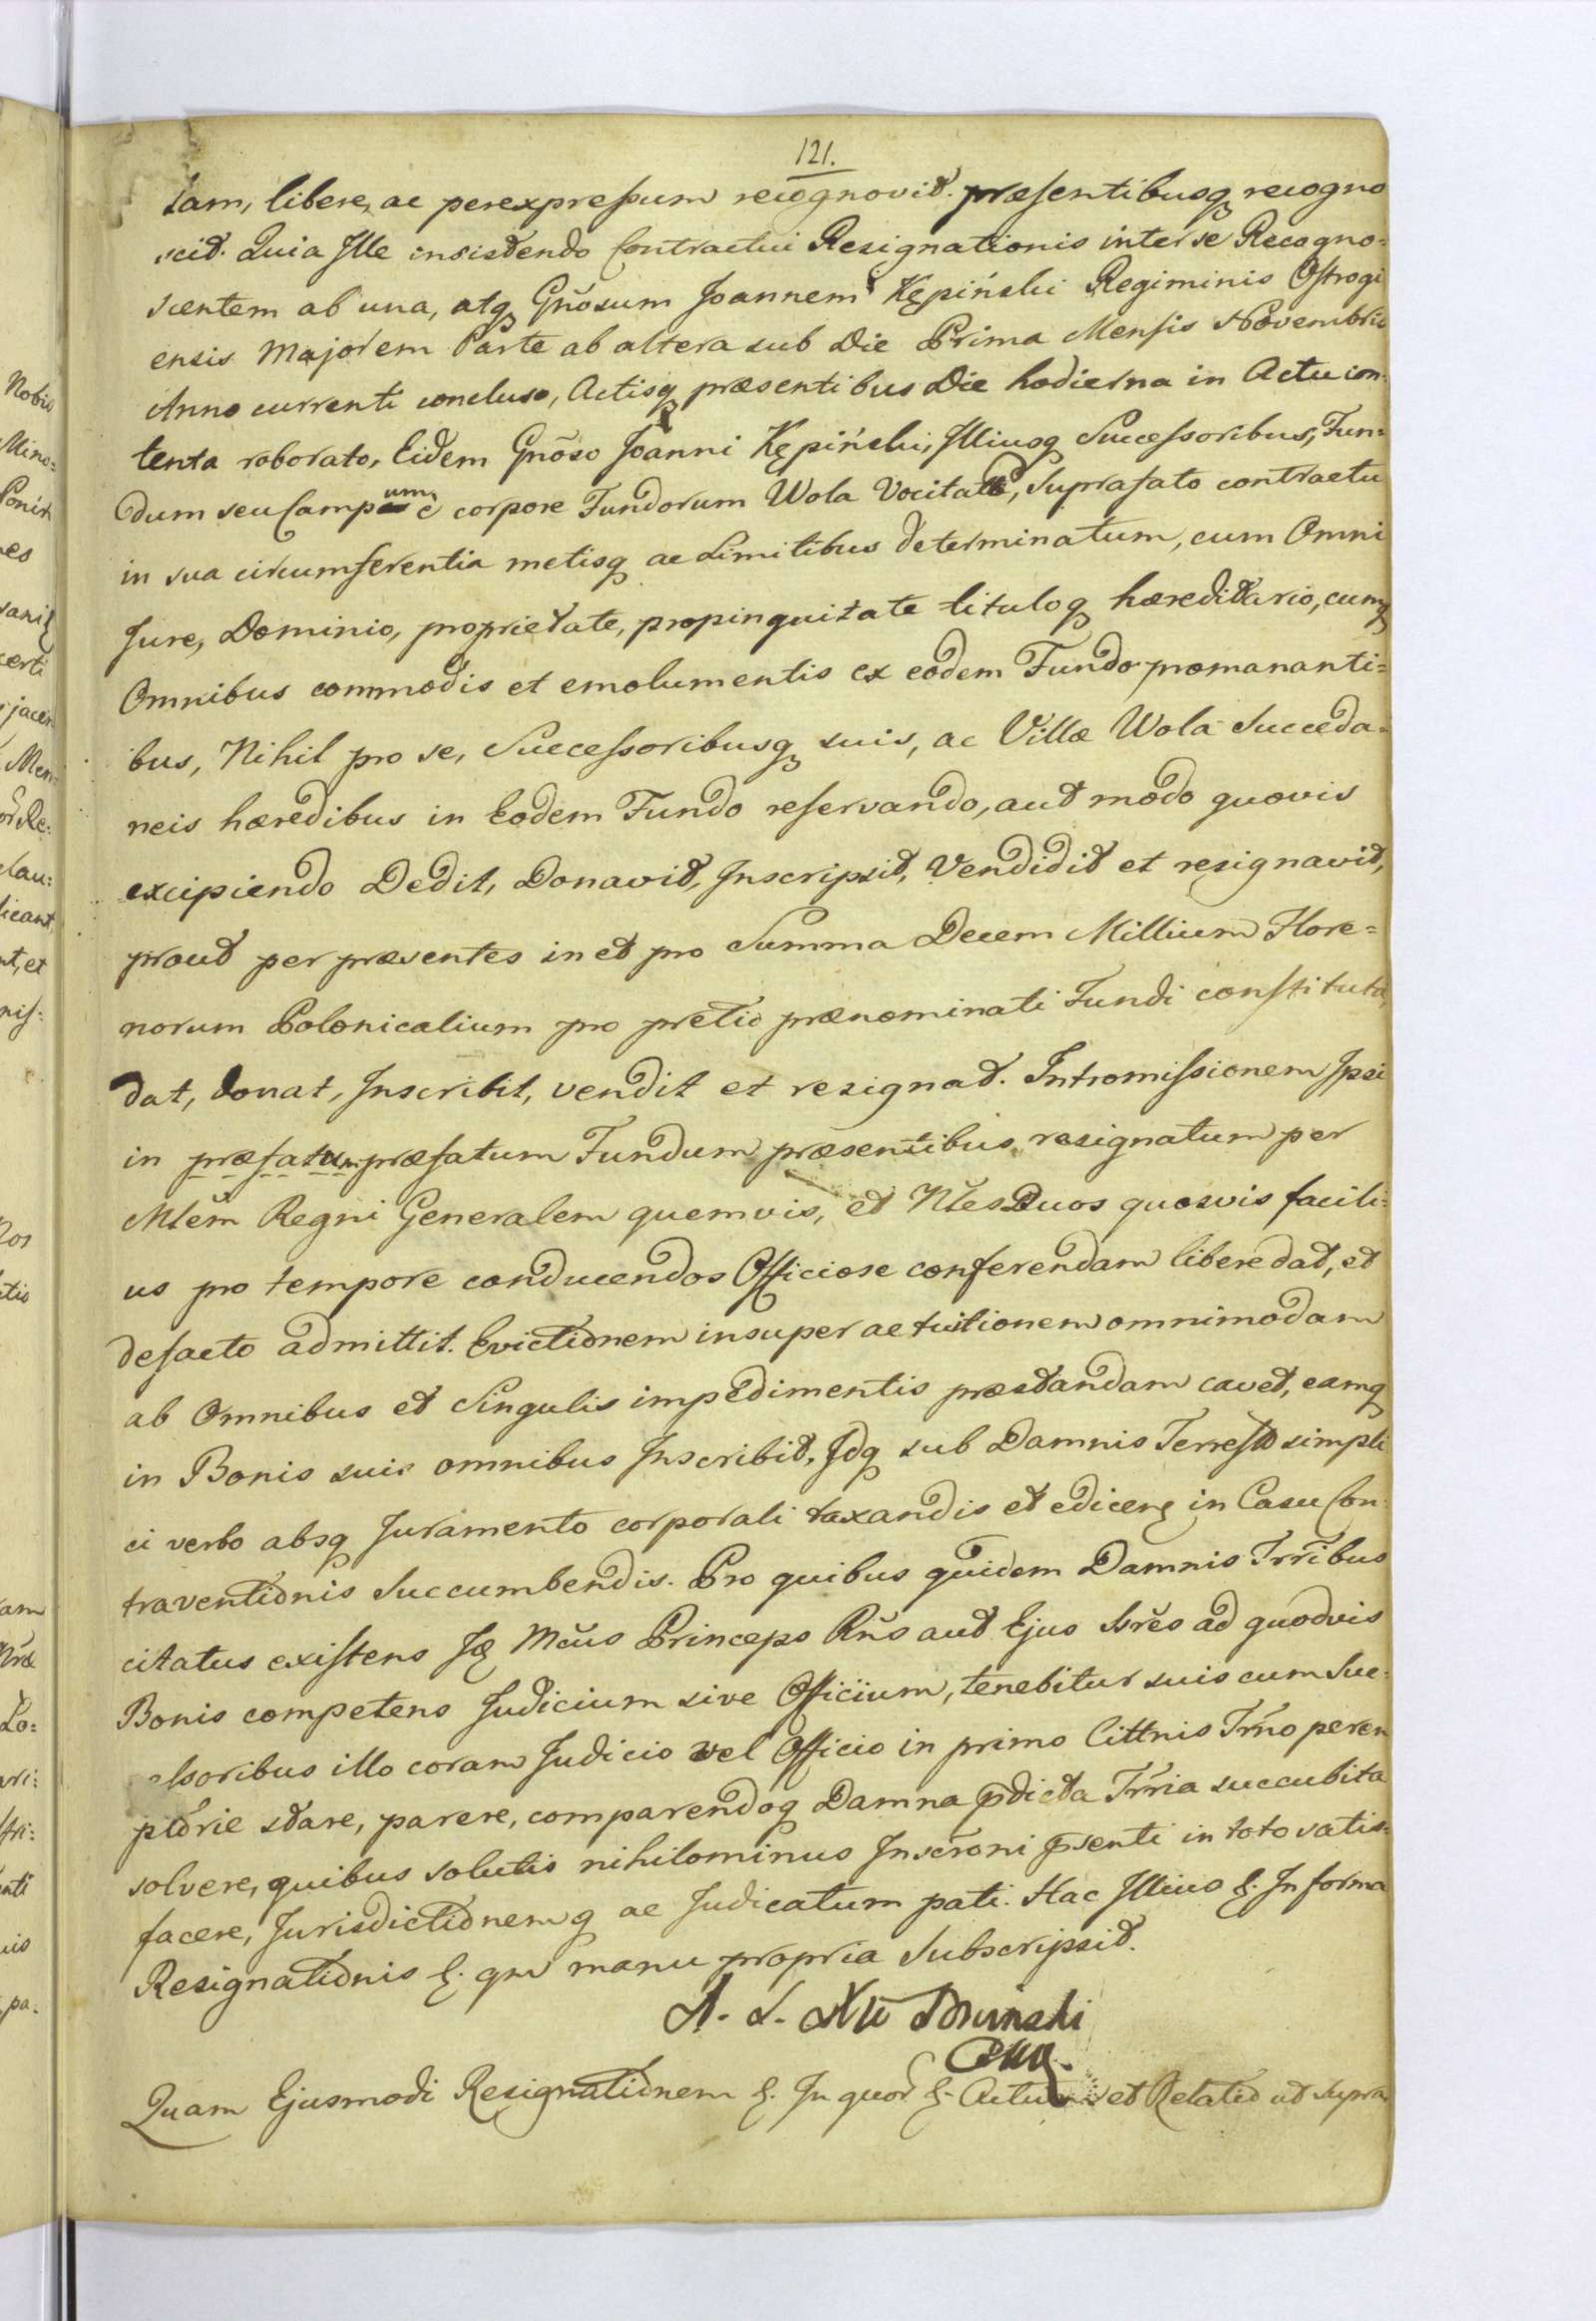 121.
tam, libere, ac perexpressum recognovit. præsentibusq recogno
scit. Quia Ille insistendo Contractui Resignationis inter se Recogno=
scentem ab una, atq Gnõsum Joannem Kępiński Regiminis Ostrogi
ensis Majorem Parte ab altera sub Die Prima Mensis Novembris
Anno currenti concluso, Actisq præsentibus Die hodierna in Actu con=
tenta roborato, Eidem Gnõso Joanni Kępiński, Illiusq Successoribus, Fun=
dum seu Campum e corpore Fundorum Wola Vocitat, Suprafato contractu
in sua circumferentia metisq ac Limitibus determinatum, cum Omni
Jure, Dominio, proprietate, propinquitate tituloq hæreditario, cumq
Omnibus commodis et emolumentis ex eodem Fundo promananti=
bus, Nihil pro se, Successoribusq suis, ac Villæ Wola Succeda=
neis hæredibus in Eodem Fundo reservando, aut modo quovis
excipiendo Dedit, Donavit, Inscripsit, Vendidit et resignavit,
prout per præsentes in et pro Summa Decem Millium Flore=
norum Polonicalium pro pretio prænominati Fundi constituta,
dat, donat, Inscribit, vendit et resignat. Intromissionem Ipsi
in præfatum præfatum Fundum præsentibus resignatum per
Mlem Regni Generalem quemvis, et Nles Duos quosvis facili=
us pro tempore conducendos Officiose conferendam libere dat, et
defacto admittit. Evictionem insuper ac tuitionem omnimodam
ab Omnibus et Singulis impedimentis præstandam cavet, eamq
in Bonis suis omnibus Inscribit, Idq sub Damnis Terrest simpli
ci verbo absq Juramento corporali taxandis et edicen in Casu Con=
traventionis Succumbendis. Pro quibus quidem Damnis Trribus
citatus existens Mcus Princeps Rns aut Ejus Ssres ad quodvis
Bonis competens Judicium sive Officium, tenebitur suis cum Suc=
essoribus illo coram Judicio vel Officio in primo Cittnis Trno perem
ptorie stare, parere, comparendoq Damna pdicta Trria succubita
solvere, quibus solutis nihilominus Inscroni psenti in toto satis=
facere, Jurisdictionemq ac Judicatum pati. Hac Illius &. In forma
Resignationis &. qm manu propria Subscripsit.
Quam Ejusmodi Resignationem &. In quor &. Actum et Relatio ut Supra